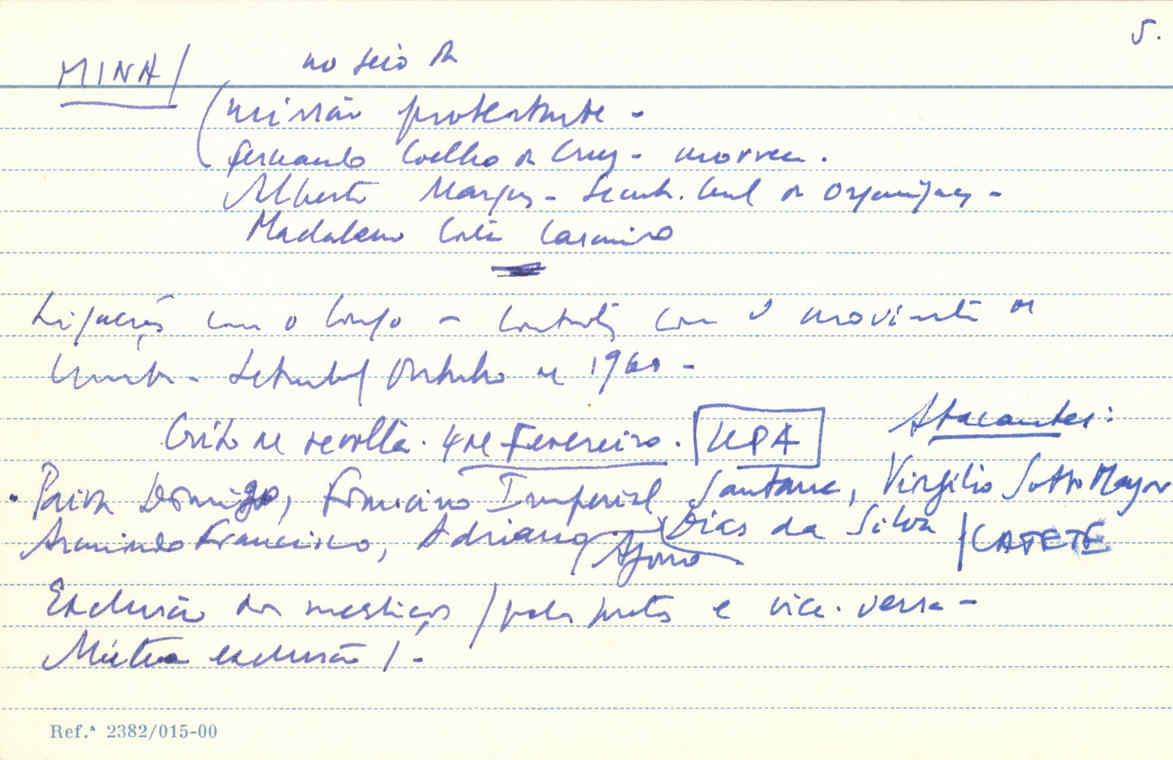 5.
MINA / no seio da
(missão protestante -
Fernando Coelho da Cruz - morreu.
Alberto Marques - Secret. Geral da Organização -
Madaleno Casimiro
Ligações com o Congo - Contactos com o movimento de
Setembro / Outubro de 1960 -
Grito de revolta. 4 de Fevereiro. UPA Atacantes:
• Paiva Domingo, Francisco Imperial Santana, Virgílio Sotto Mayor
Armindo Francisco, Adriano (Dias da Silva / CATETE
Afonso
Exclusão dos mestiços / pelos pretos e vice-versa -
Mútua exclusão / -
Ref.ª 2382/015-00